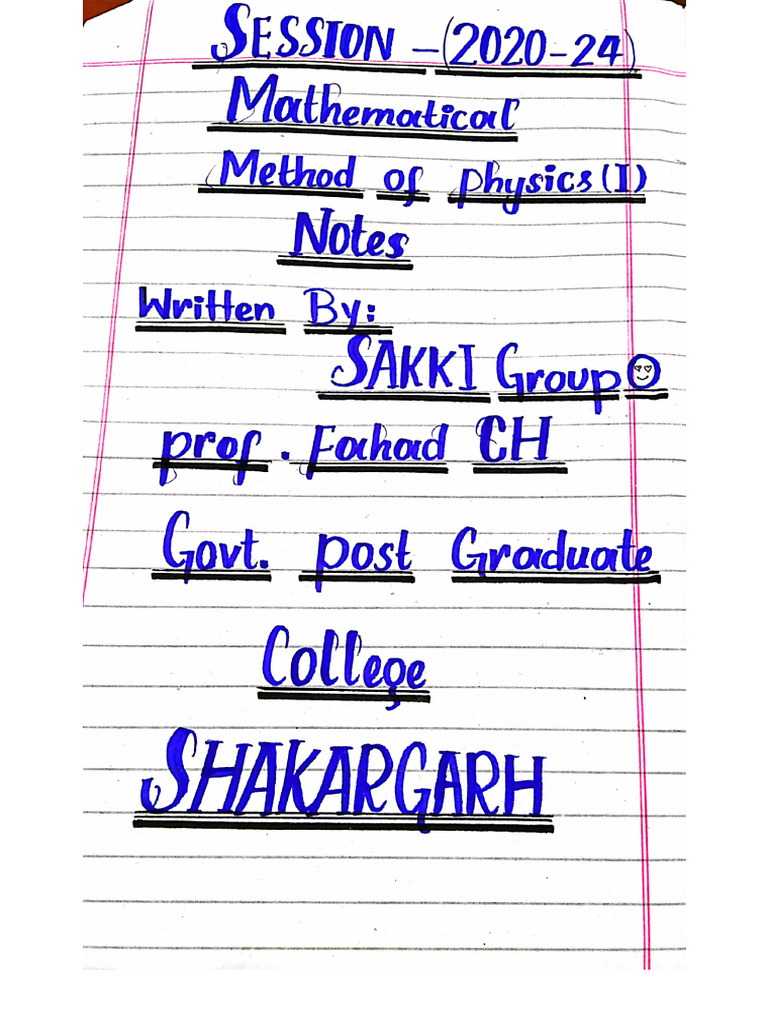 SESSION - (2020-24)
Mathematical
Method of Physics (I)
Notes
Written By:
SAKKI Group
prof. Fahad CH
Govt. post Graduate
College
SHAKARGARH